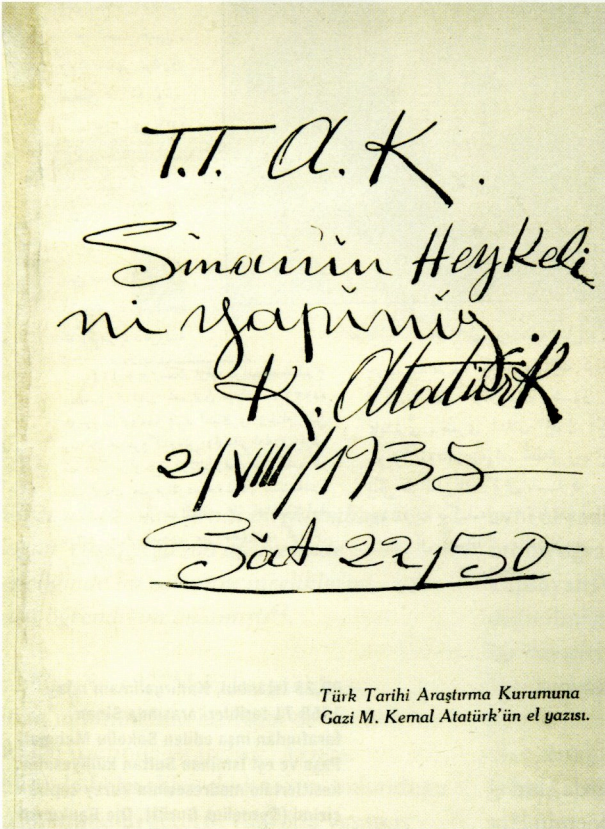 T.T. A. K.
Sinanın Heykeli
ni yapınız.
K. Atatürk
2/VIII/1935
Sāt 22,50
Türk Tarihi Araştırma Kurumuna
Gazi M. Kemal Atatürk'ün el yazısı.